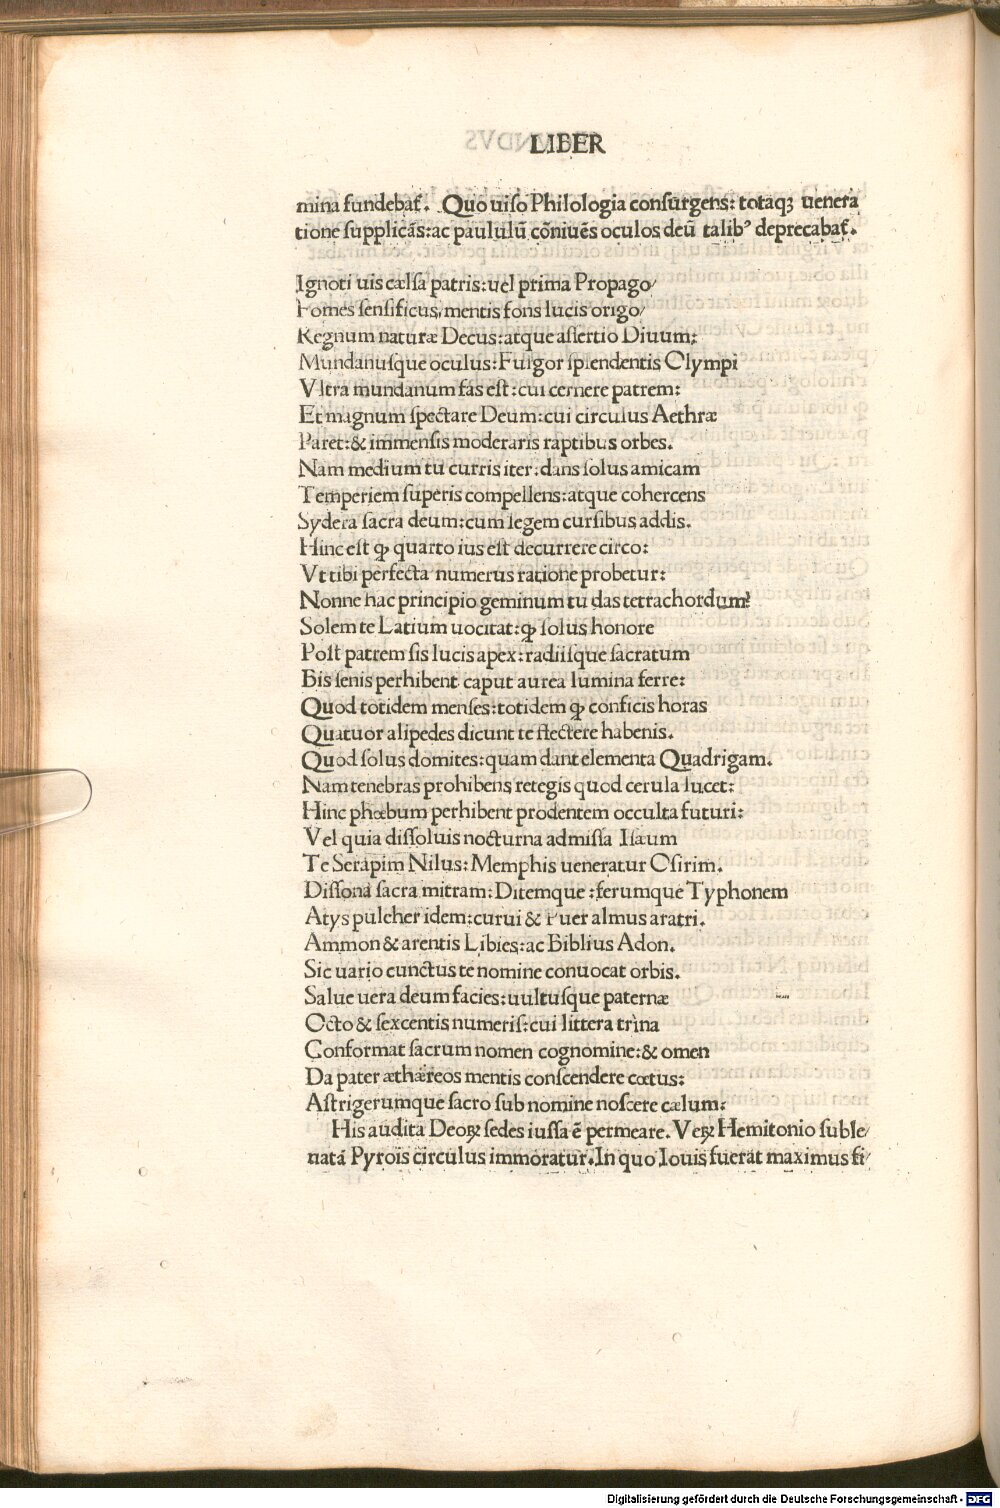 LIBER
mina fundebat᷒. Quo uiso Philologia consurgens: totaqꝫ uenera
tione supplicãs: ac paululũ cõniuẽs oculos deũ talibꝰ deprecabat᷒.
Ignoti uis cælsa patris: uel prima Propago/
Fomes sensificus, mentis fons lucis origo/
Regnum naturæ Decus: atque assertio Diuum:
Mundanusque oculus: Fulgor splendentis Olympi
Vltra mundanum fas est: cui cernere patrem:
Et magnum spectare Deum: cui circulus Aethræ
Paret: & immensis moderaris raptibus orbes.
Nam medium tu curris iter: dans solus amicam
Temperiem superis compellens: atque cohercens
Sydera sacra deum: cum legem cursibus addis.
Hinc est ꝙ quarto ius est decurrere circo:
Vt tibi perfecta numerus ratione probetur:
Nonne hac principio geminum tu das tetrachordum?
Solem te Latium uocitat: ꝙ solus honore
Post patrem sis lucis apex: radiisque sacratum
Bis senis perhibent caput aurea lumina ferre:
Quod totidem menses: totidem ꝙ conficis horas
Quatuor alipedes dicunt te flectere habenis.
Quod solus domites: quam dant elementa Quadrigam.
Nam tenebras prohibens retegis quod cerula lucet:
Hinc phœbum perhibent prodentem occulta futuri:
Vel quia dissoluis nocturna admissa Isæum
Te Serapim Nilus: Memphis ueneratur Osirim.
Dissona sacra mitram: Ditemque: ferumque Typhonem
Atys pulcher idem: curui & Puer almus aratri.
Ammon & arentis Libies: ac Biblius Adon.
Sic uario cunctus te nomine conuocat orbis.
Salue uera deum facies: uultusque paternæ
Octo & sexcentis numeris: cui littera trina
Conformat sacrum nomen cognomine: & omen
Da pater æthæreos mentis conscendere cœtus:
Astrigerumque sacro sub nomine noscere cælum:
His audita Deoꝝ sedes iussa ẽ permeare. Veꝝ Hemitonio suble/
uatã Pyrois circulus immoratur. In quo Iouis fuerat maximus fi/
Digitalisierung gefördert durch die Deutsche Forschungsgemeinschaft - DFG